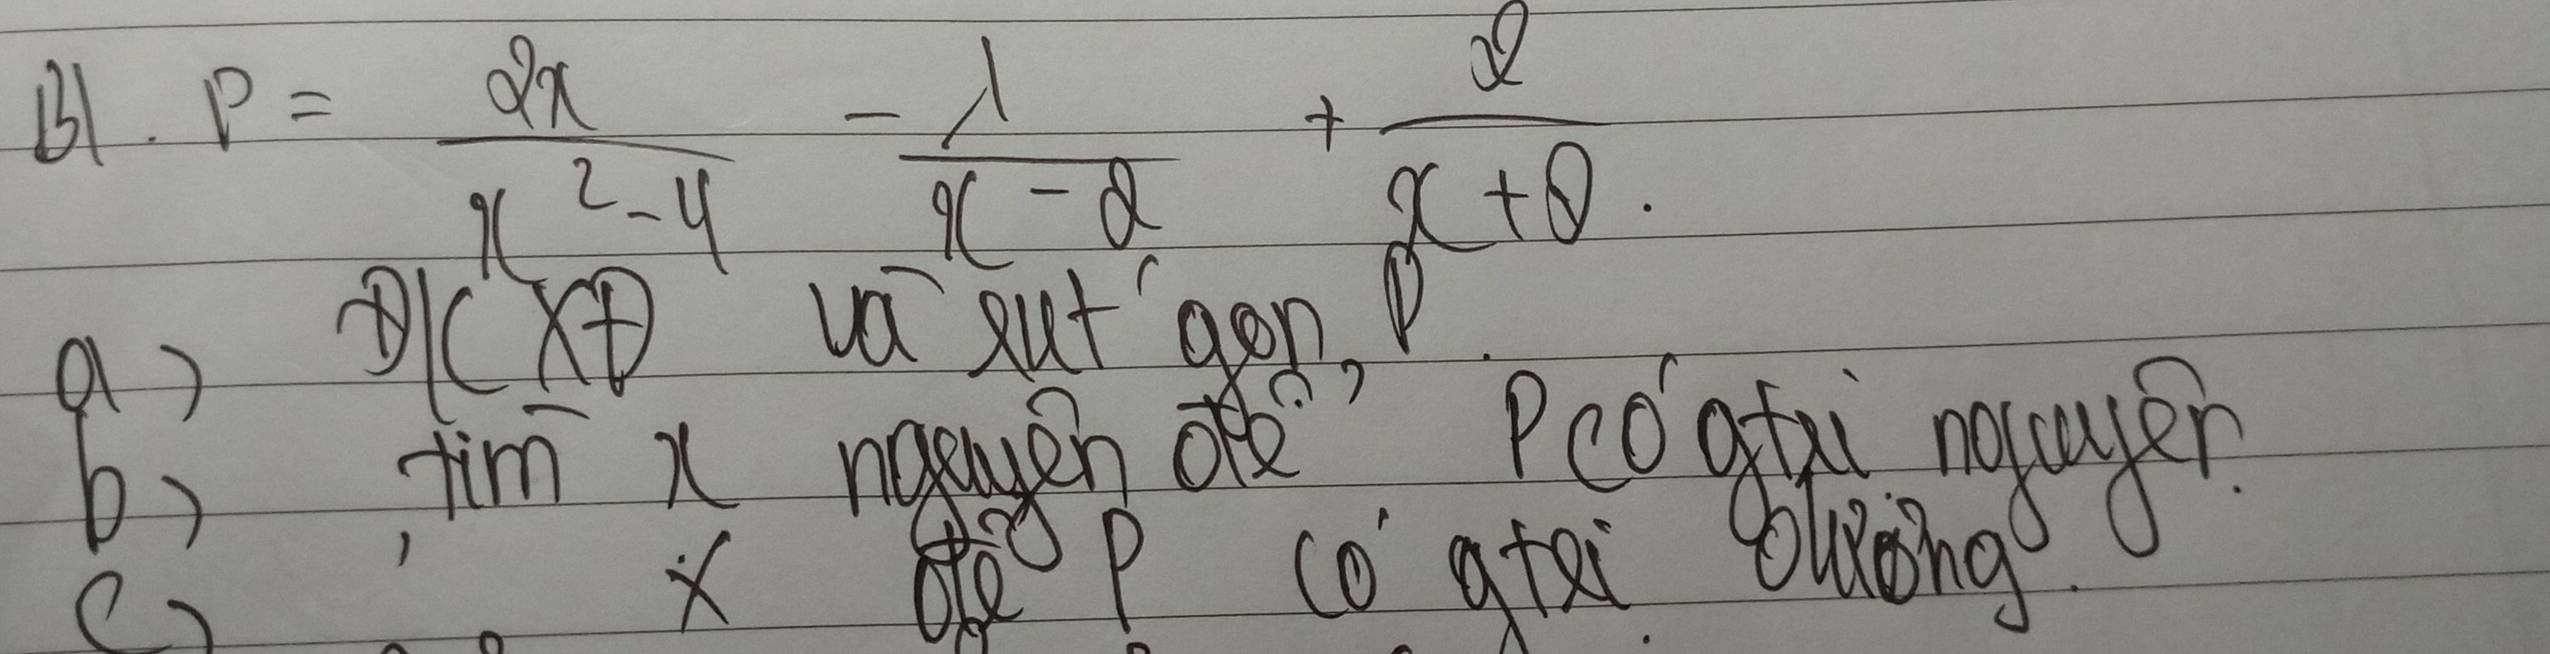 B1. P = 2x / x² - 4 - 1 / x - 2 + 2 / x + 2.
a) ĐKXĐ và rút gọn P.
b) Tìm x nguyên để P có gtrị nguyên.
c) " x để P có gtrị dương.